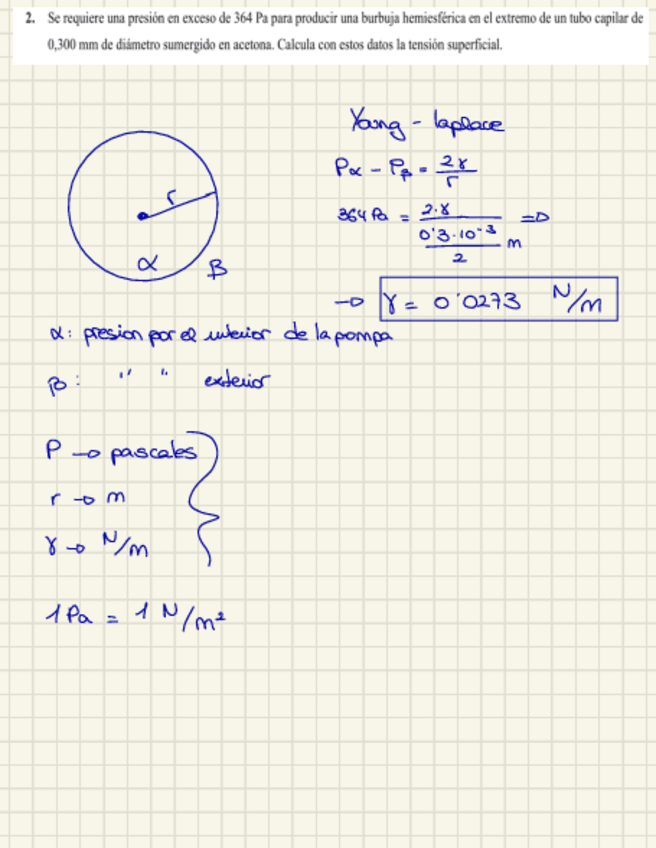 2. Se requiere una presión en exceso de 364 Pa para producir una burbuja hemiesférica en el extremo de un tubo capilar de
0,300 mm de diámetro sumergido en acetona. Calcula con estos datos la tensión superficial.
Young - laplace
Pα - Pβ = 2γ / r
364 Pa = 2·γ / (0'3·10⁻³ / 2) m =>
r
α
β
→ γ = 0'0273 N/m
α: presion por el interior de la pompa
β: " " exterior
P → pascales
r → m
γ → N/m
1 Pa = 1 N/m²